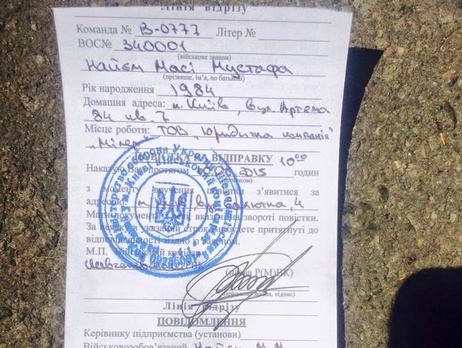 Лінія відрізу
Команда № В-0777 Літер №
ВОС№ 340001
(військове звання)
Найєм Масі Мустафа
(прізвище, ім'я, по батькові)
Рік народження 1984
Домашня адреса: м. Київ, вул. Артема
84 кв. 7
Місце роботи: ТОВ "Юридична компанія"
ВІДПРАВКУ 10⁰⁰
Наказую Вам протягом 2015 годин
з моменту вручення повістки з'явитися за
адресою: м. Київ, вул.
Мати документи, вказані на звороті повістки.
За неявку в указаний строк Ви будете притягнуті до
відповідальності згідно із законом.
М.П. Військовий комісар
(назва Р(М)ВК)
підпис)
Лінія відрізу
ПОВІДОМЛЕННЯ
Керівнику підприємства (установи)
Військовозобов'язаний Найєм М.М.